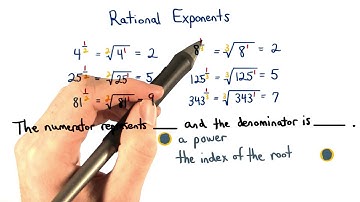 Rational Exponents
4^(1/2) = ²√4¹ = 2
8^(1/3) = ³√8¹ = 2
25^(1/2) = ²√25¹ = 5
125^(1/3) = ³√125¹ = 5
81^(1/2) = ²√81¹ = 9
343^(1/3) = ³√343¹ = 7
The numerator represents ___ and the denominator is ___.
a power
the index of the root